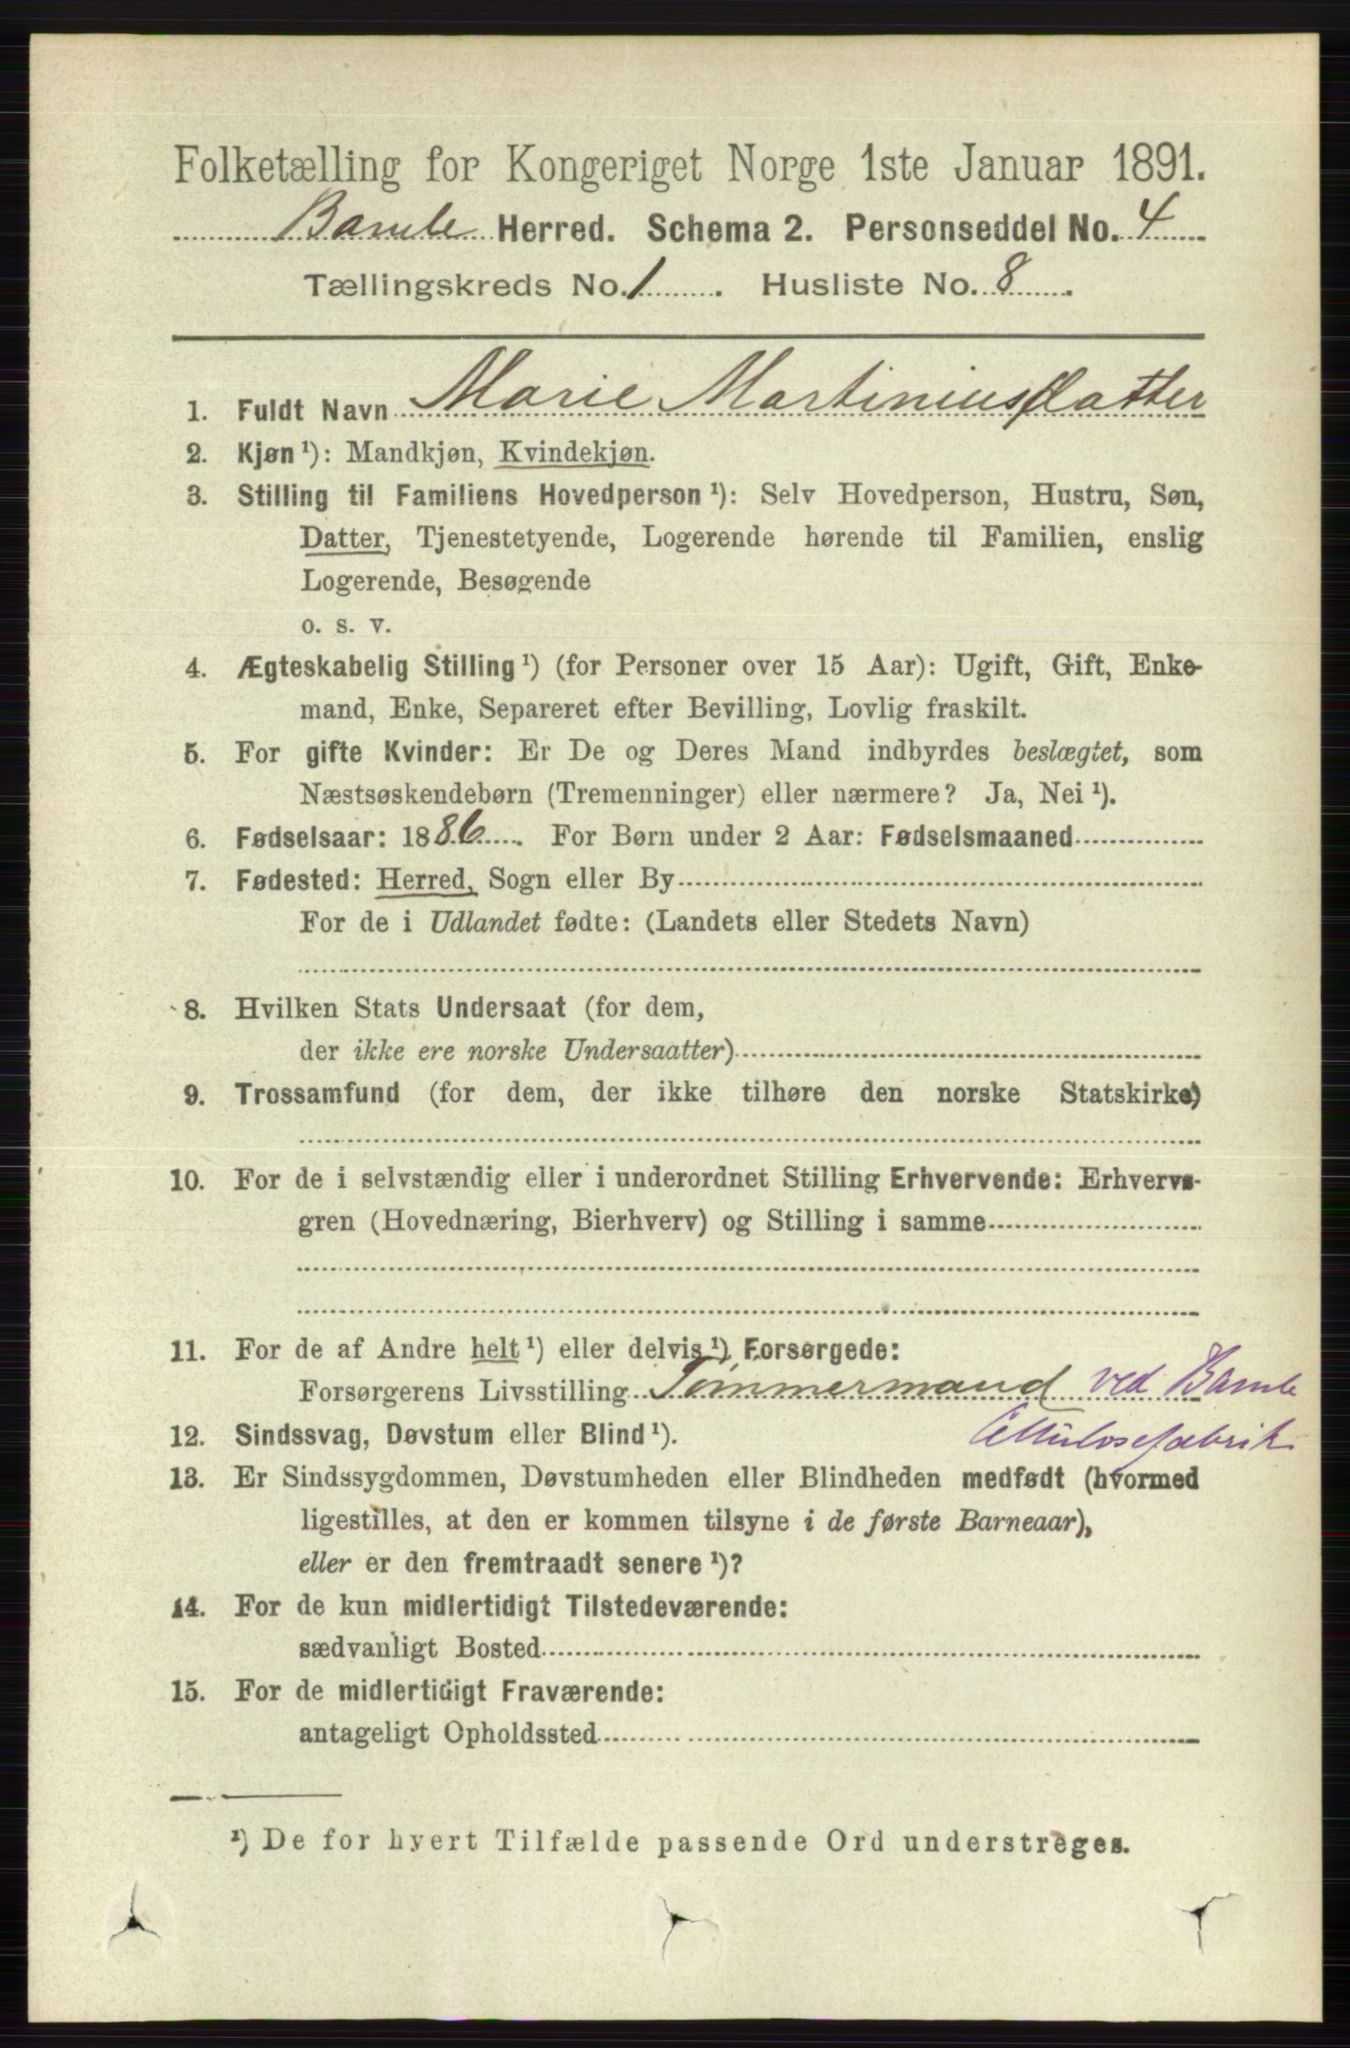 Folketælling for Kongeriget Norge 1ste Januar 1891.
Bamle Herred. Schema 2. Personseddel No. 4
Tællingskreds No. 1. Husliste No. 8.
1. Fuldt Navn Marie Martiniusdatter
2. Kjøn ¹): Mandkjøn, Kvindekjøn.
3. Stilling til Familiens Hovedperson ¹): Selv Hovedperson, Hustru, Søn,
Datter, Tjenestetyende, Logerende hørende til Familien, enslig
Logerende, Besøgende
o. s. v.
4. Ægteskabelig Stilling ¹) (for Personer over 15 Aar): Ugift, Gift, Enke-
mand, Enke, Separeret efter Bevilling, Lovlig fraskilt.
5. For gifte Kvinder: Er De og Deres Mand indbyrdes beslægtet, som
Næstsøskendebørn (Tremenninger) eller nærmere? Ja, Nei ¹).
6. Fødselsaar: 1886. For Børn under 2 Aar: Fødselsmaaned
7. Fødested: Herred, Sogn eller By
For de i Udlandet fødte: (Landets eller Stedets Navn)
8. Hvilken Stats Undersaat (for dem,
der ikke ere norske Undersaatter)
9. Trossamfund (for dem, der ikke tilhøre den norske Statskirke)
10. For de i selvstændig eller i underordnet Stilling Erhvervende: Erhvervs-
gren (Hovednæring, Bierhverv) og Stilling i samme
11. For de af Andre helt ¹) eller delvis ¹) Forsørgede:
Forsørgerens Livsstilling Tømmermand ved Bamle
Cellulosefabrik
12. Sindssvag, Døvstum eller Blind ¹).
13. Er Sindssygdommen, Døvstumheden eller Blindheden medfødt (hvormed
ligestilles, at den er kommen tilsyne i de første Barneaar),
eller er den fremtraadt senere ¹)?
14. For de kun midlertidigt Tilstedeværende:
sædvanligt Bosted
15. For de midlertidigt Fraværende:
antageligt Opholdssted
¹) De for hvert Tilfælde passende Ord understreges.